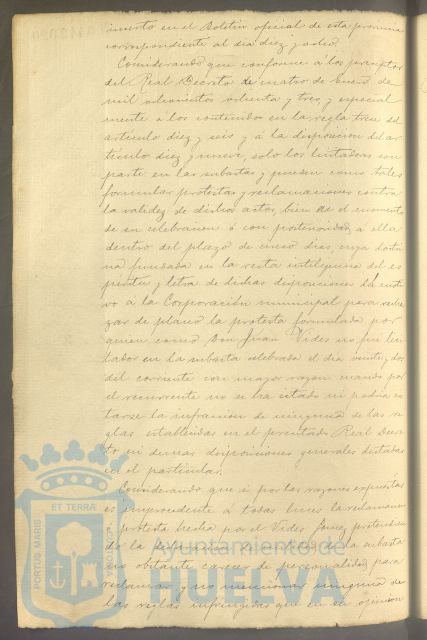 inserto en el Boletin oficial de esta provincia
correspondiente al dia diez y ocho.
Considerando que conforme á los preceptos
del Real Decreto de cuatro de Enero de
mil ochocientos ochenta y tres, y especial
mente á los contenidos en la regla trece del
articulo diez y seis y á la disposicion del ar
ticulo diez y nueve, solo los licitadores son
parte en las subastas y pueden como tales
formular protestas y reclamaciones contra
la validez de dichos actos, bien en el momento
de su celebracion ó con posterioridad á ella
dentro del plazo de cinco dias, cuya doctri
na fundada en la recta inteligencia del es
piritu y letra de dichas disposiciones
á la Corporacion municipal para recha
zar de plano la protesta formulada por
quien como Don Juan Vides no fue lici
tador en la subasta celebrada el dia veinte y dos
del corriente con mayor razon cuando por
el recurrente no se ha citado ni podria ci
tarse la infraccion de ninguna de las re
glas establecidas en el precitado Real Decre
to ni demas disposiciones generales dictadas
en el particular.
Considerando que si por las razones expuestas
es improcedente á todas luces la reclamacion
ó protesta hecha por el Vides
de la subasta
no obstante carecer de personalidad para
reclamar y no mencionar ninguna de
las reglas infringidas que en su opinion
PORTUS MARIS ET TERRÆ CUSTODIA
Ayuntamiento de
HUELVA